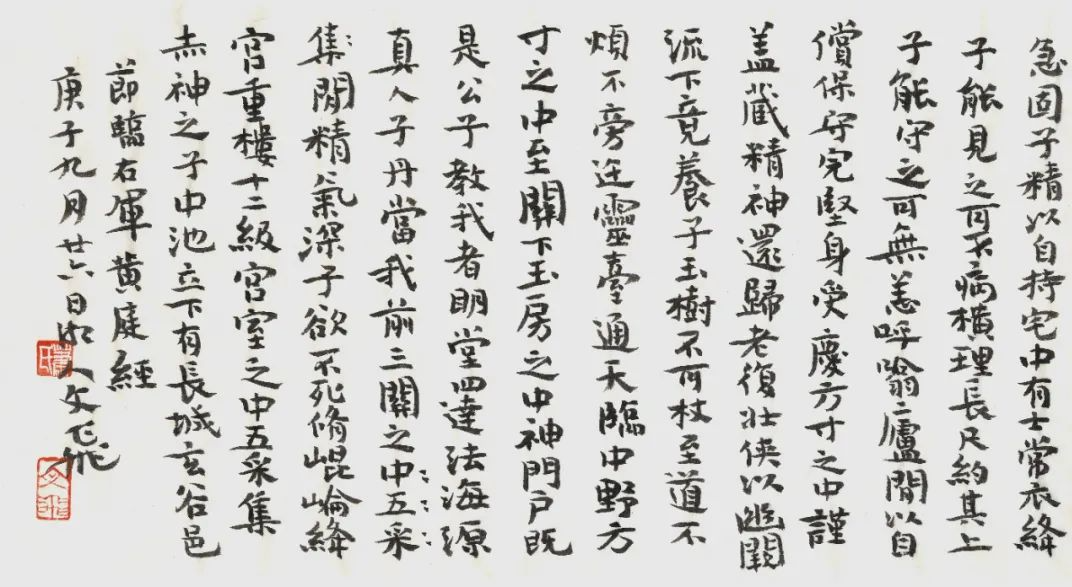 急固子精以自持宅中有士常衣絳
子能見之可不病橫理長尺約其上
子能守之可無恙呼噏廬間以自
償保守完堅身受慶方寸之中謹
蓋藏精神還歸老復壯俠以幽闕
流下竟養子玉樹不可杖至道不
煩不旁迕靈臺通天臨中野方
寸之中至關下玉房之中神門戶既
是公子教我者明堂四達法海源
真人子丹當我前三關之中五采
集閒精氣深子欲不死脩崐崘絳
宮重樓十二級宮室之中五采集
赤神之子中池立下有長城玄谷邑
節臨右軍黃庭經
庚子九月廿六日 人文飛